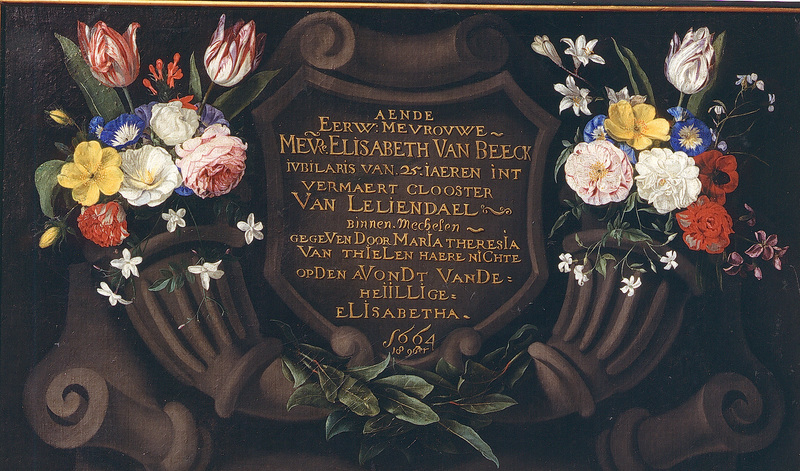 AENDE
EERW: MEVROUWE~
MEVR: ELISABETH VAN BEECK
IVBILARIS VAN. 25. IAEREN INT
VERMAERT CLOOSTER
VAN LELIENDAEL
BINNEN. Mechelen~
GEGEVEN DOOR MARIA THERESIA
VAN THIELEN HAERE NICHTE
OPDEN AVONDT VANDE:
HEIILLIGE:
ELISABETHA.
1664
18 9ber